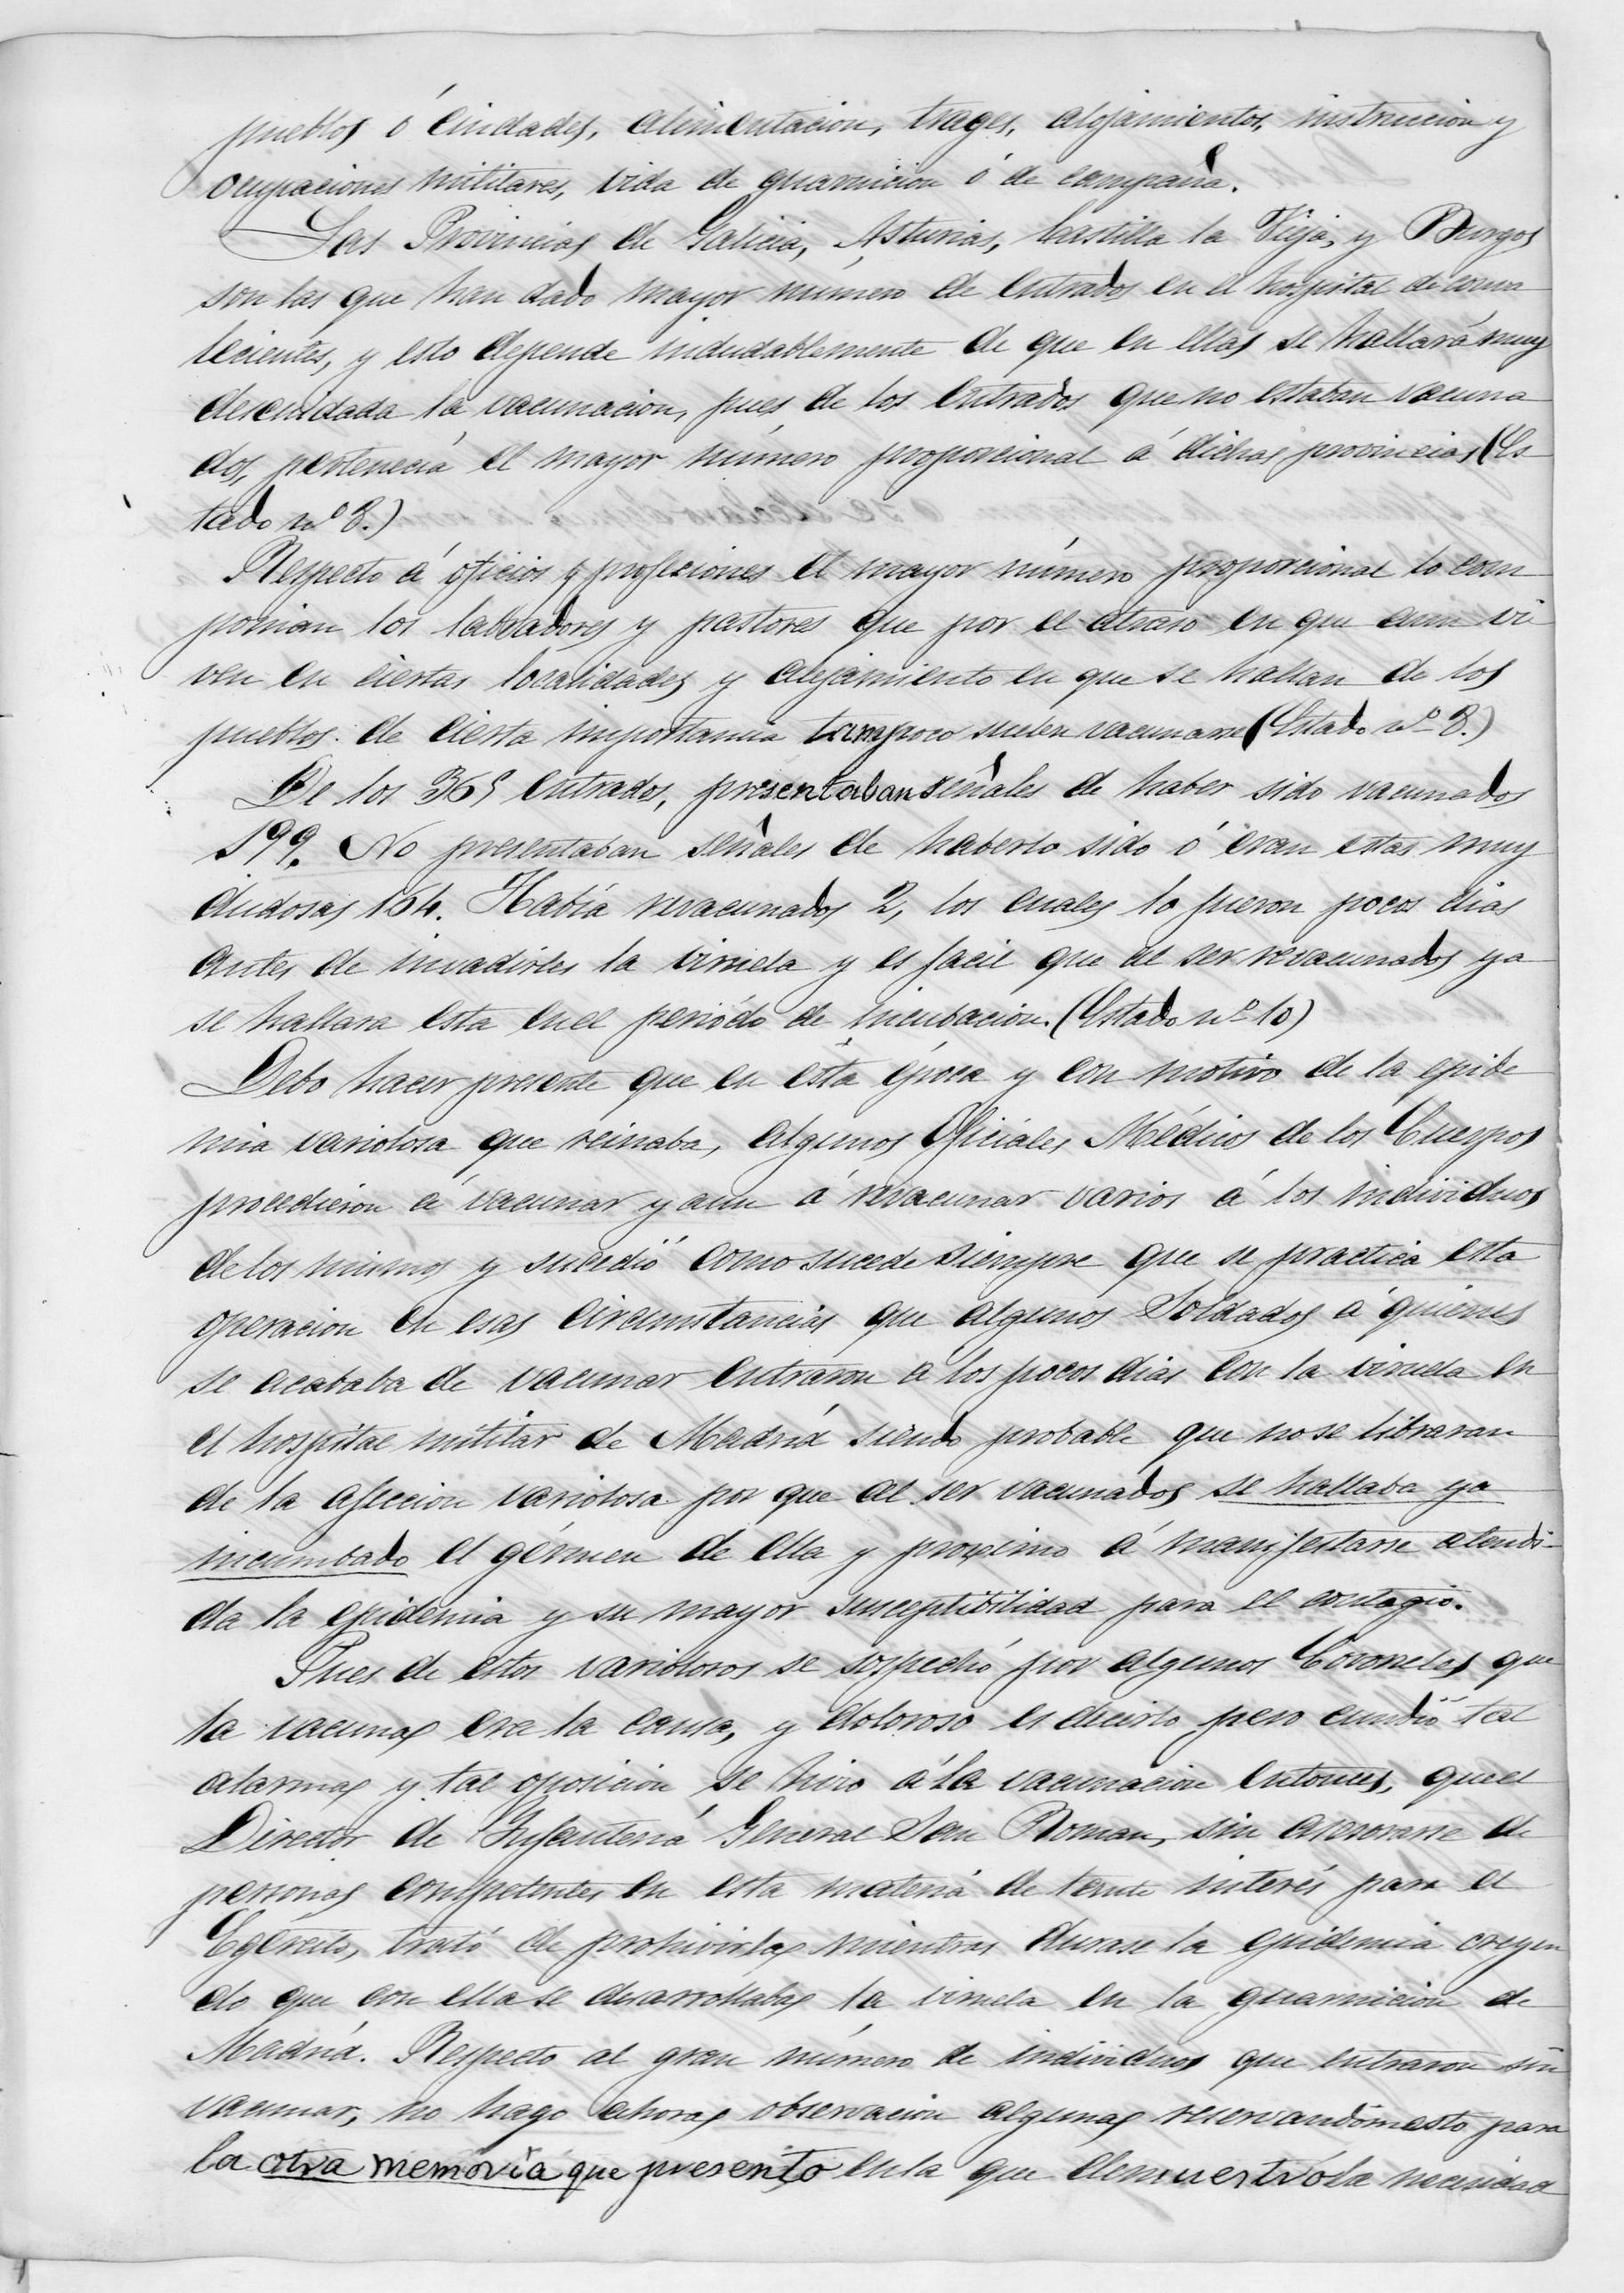 pueblos ó ciudades, alimentacion, trages, alojamientos, instruccion y
ocupaciones militares, vida de guarnicion ó de campaña.
Las Provincias de Galicia, Asturias, Castilla la Vieja, y Burgos
son las que han dado mayor número de entrados en el hospital de conva
lecientes, y esto depende indudablemente de que en ellas se hallará muy
descuidada la vacunacion, pues de los entrados que no estaban vacuna
dos, pertenecia el mayor número proporcional á dichas provincias (Es
tado nº 8.)
Respecto á oficios y profesiones el mayor número proporcional lo com
ponian los labradores y pastores que por el atraso en que aun vi
ven en ciertas localidades y alejamiento en que se hallan de los
pueblos de cierta importancia tampoco suelen vacunarse (Estado nº 8.)
De los 365 entrados, presentaban señales de haber sido vacunados
199. No presentaban señales de haberlo sido ó eran estas muy
dudosas 164. Había revacunados 2, los cuales lo fueron pocos dias
antes de invadirles la viruela y es facil que al ser revacunados ya
se hallara esta en el periódo de incubacion. (Estado nº 10)
Debo hacer presente que en esta época y con motivo de la epide
mia variolosa que reinaba, algunos Oficiales Médicos de los Cuerpos
procedieron á vacunar y aun á revacunar varios á los individuos
de los mismos y sucedió como sucede siempre que se practica esta
operacion en esas circunstancias que algunos Soldados á quienes
se acababa de vacunar entraron a los pocos dias con la viruela en
el hospital militar de Madrid siendo probable que no se libraran
de la afeccion variolosa por que al ser vacunados se hallaba ya
incumbado el gérmen de ella y proximo á manifestarse atendi-
da la epidemia y su mayor susceptibilidad para el contagio.
Pues de estos variolosos se sospechó por algunos Coroneles que
la vacuna era la causa, y doloroso es decirlo pero cundió tal
alarma y tal oposicion se hizo á la vacunacion entonces, que el
Director de Infanteria General San Roman, sin asesorarse de
personas competentes en esta materia de tanto interés para el
Egército, trató de prohivirla mientras durase la epidemia creyen
do que con ella se desarrollaba la viruela en la guarnicion de
Madrid. Respecto al gran número de individuos que entraron sin
vacunar, no hago ahora observacion alguna reservandome esto para
la otra memoria que presento en la que demuestro la necesidad